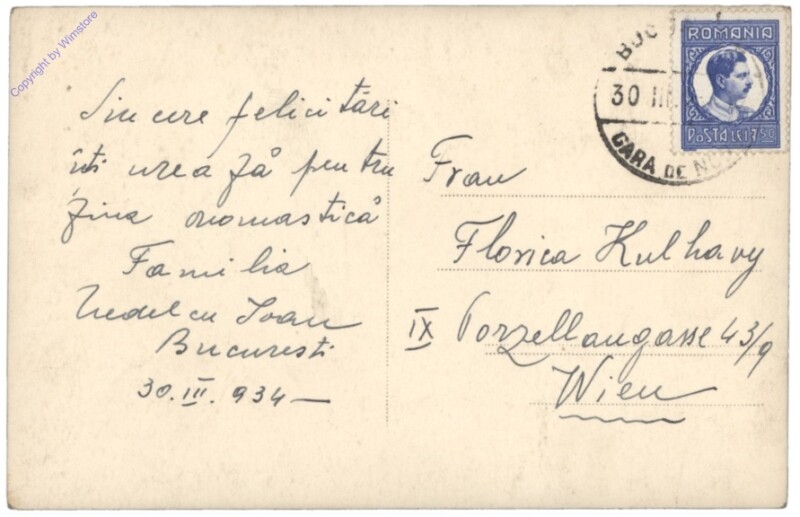 Copyright by Wimstore
Sincere felicitări
îți urează pentru
ziua onomastică
Familia
Nedelcu Ioan
Bucuresti
30.III.934—
ROMANIA
POSTA LEI 7.50
30 III
GARA DE NO
Frau
Florica Kulhavy
IX Porzellangasse 43/9
Wien